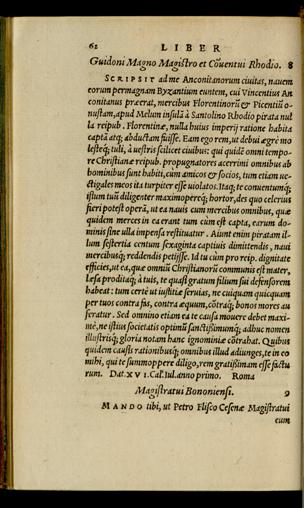 62 LIBER
Guidoni Magno Magistro et Cõuentui Rhodio. 8
SCRIPSIT ad me Anconitanorum ciuitas, nauem
eorum permagnam Byzantium euntem, cui Vincentius An
conitanus præerat, mercibus Florentinorũ & Picentiũ o-
nustam, apud Melum insulã à Santolino Rhodio pirata nul
la reipub. Florentinæ, nulla huius imperij ratione habita
captã atq; abductam fuisse. Eam ego rem, ut debui ægrè mo
lesteq; tuli, à uestris scilicet ciuibus: qui quidẽ omni tempo-
re Christianæ reipub. propugnatores acerrimi omnibus ab
hominibus sunt habiti, cum amicos & socios, tum etiam ue-
ctigales meos ita turpiter esse uiolatos. Itaq; te conuentumq;
istum tuũ diligenter maximopereq; hortor, des quo celerius
fieri potest operã, ut ea nauis cum mercibus omnibus, quæ
quidem merces in ea erant tum cùm est capta, earum do-
minis sine ulla impensa restituatur. Aiunt enim piratam il-
lum sestertia centum sexaginta captiuis dimittendis, naui
mercibusq; reddendis petijsse. Id tu cùm pro reip. dignitate
efficies, ut ea, quæ omniũ Christianorũ communis est mater,
læsa proditaq; à tuis, te quasi gratum filium sui defensorem
habeat: tum certè ui iustitiæ seruias, ne cuiquam quicquam
per tuos contra fas, contra æquum, cõtraq; bonos mores au
feratur. Sed omnino etiam ea te causa mouere debet maxi-
mè, ne istius societatis optimũ sanctissimumq; adhuc nomen
illustrisq; gloria notam hanc ignominiæ cõtrahat. Quibus
quidem causis rationibusq; omnibus illud adiunges, te in eo
mihi, qui te summopere diligo, rem gratissimam esse factu
rum. Dat. XVI. Cal. Iul. anno primo. Roma
Magistratui Bononiensi. 9
MANDO tibi, ut Petro Flisco Cesenæ Magistratui
eum